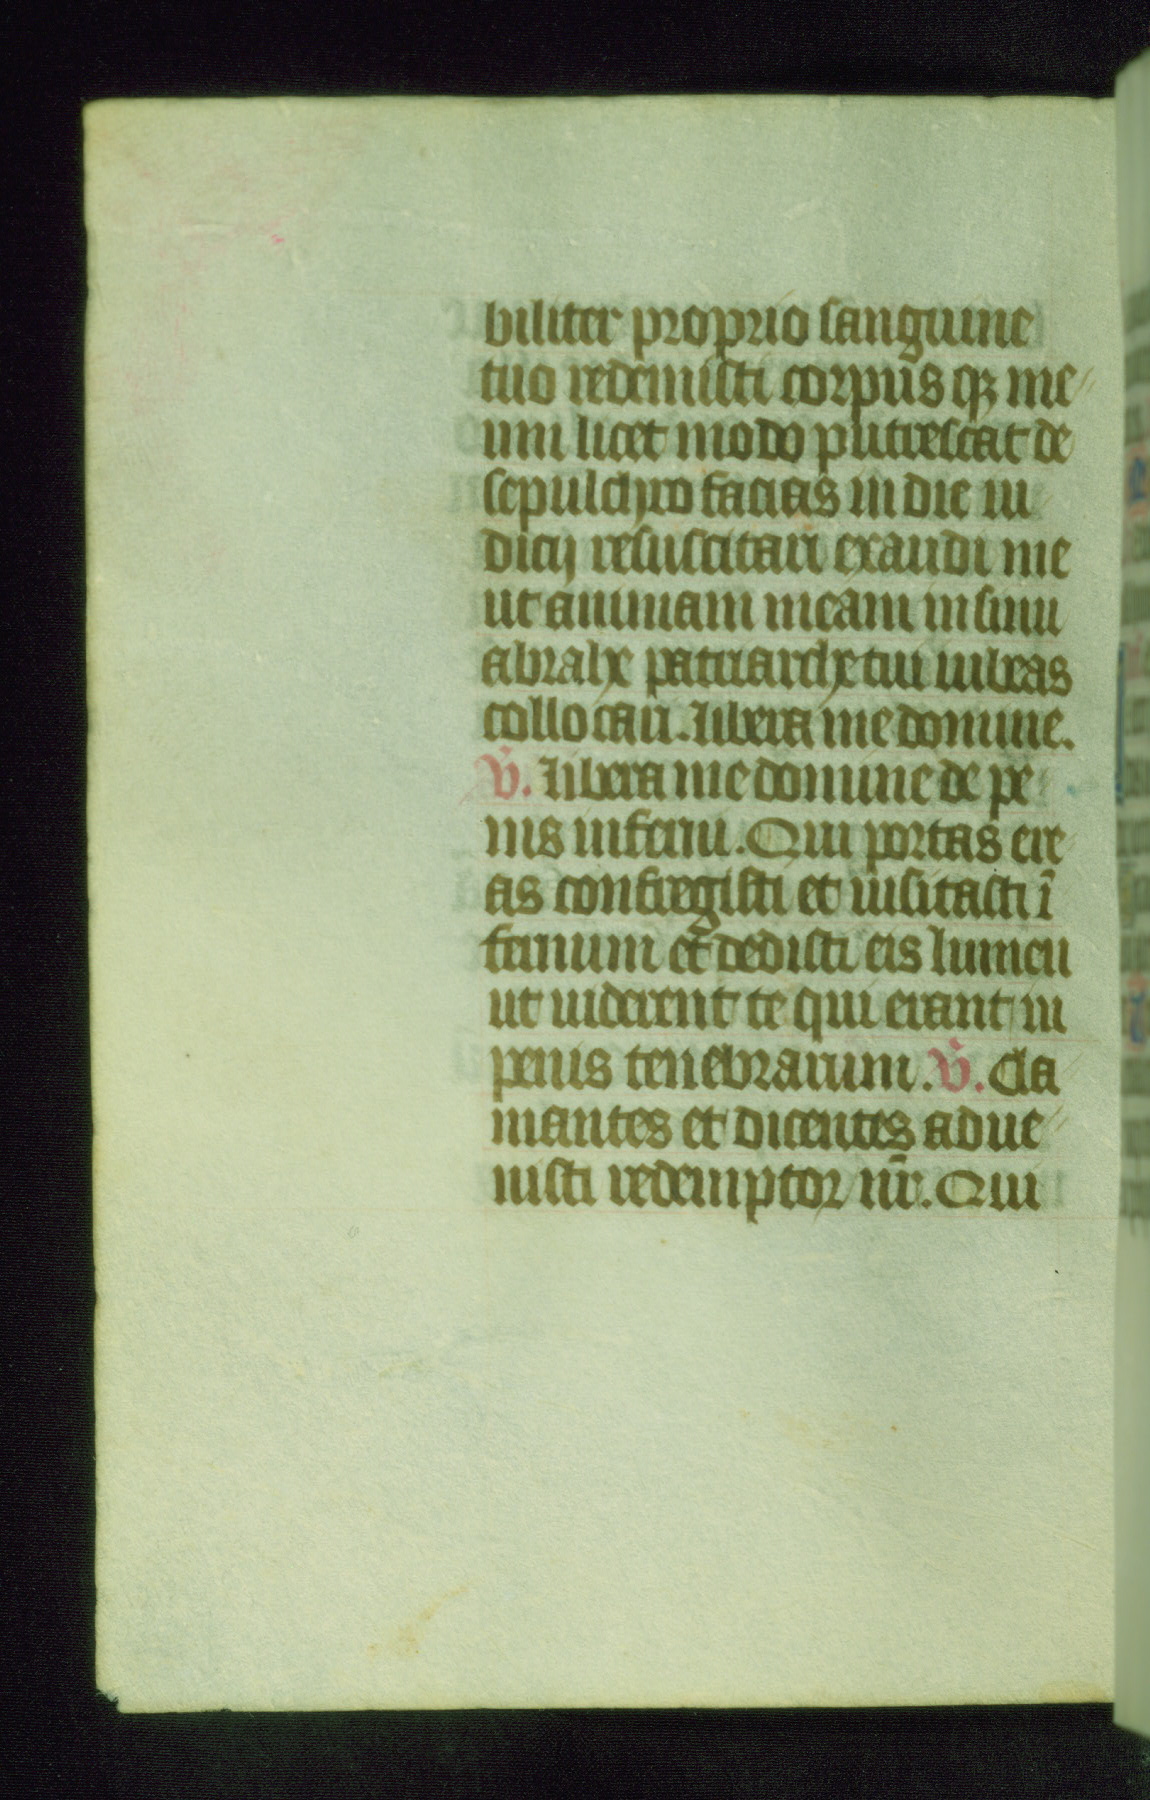 biliter proprio sanguine
tuo redemisti corpus qꝫ me
um licet modo putrescat de
sepulchro facias in die iu
dicij resuscitari exaudi me
ut animam meam in sinu
abrahe patriarche tui iubeas
collocari. Libera me domine.
V̇. Libera me domine de pe
nis inferni. Qui portas ere
as confregisti et uisitasti ī
fernum et dedisti eis lumen
ut uiderent te qui erant in
penis tenebrarum. V̇. Cla
mantes et dicentes adue
nisti redemptor nr̄. Qui